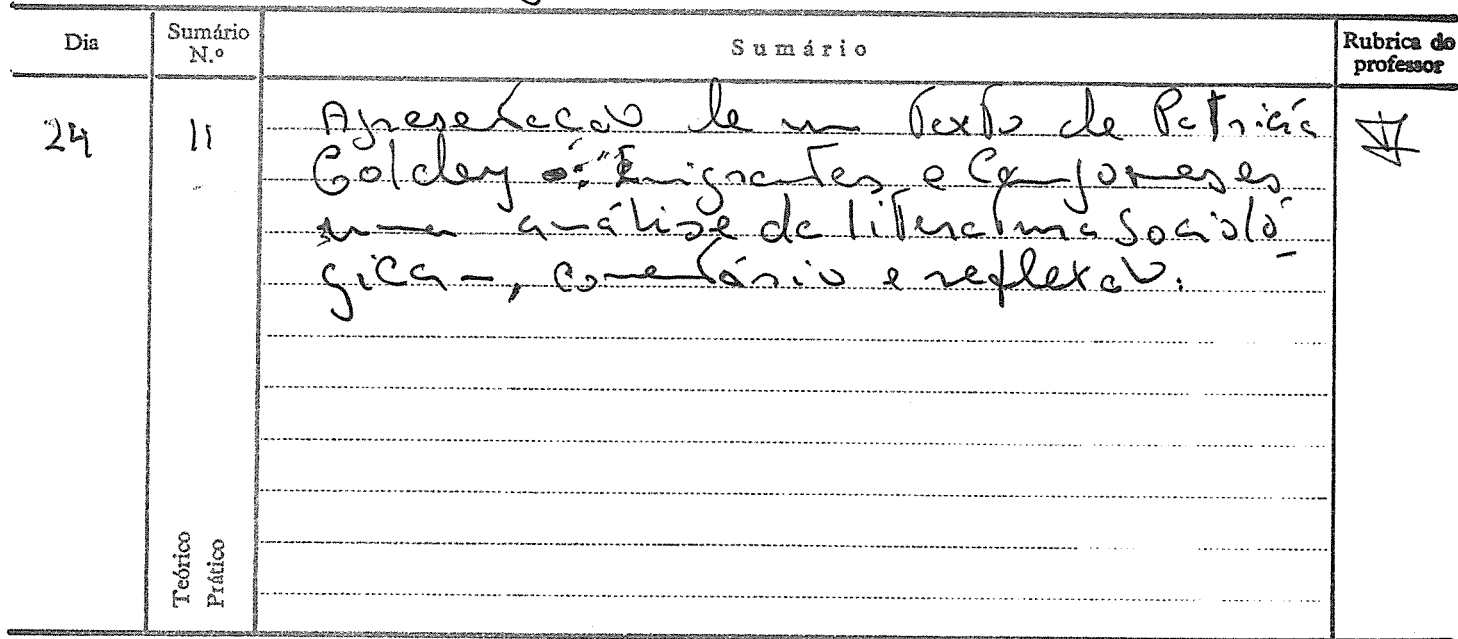 Dia
Sumário N.º
Sumário
Rubrica do professor
24
11
Apresentação de um Texto de Patricia
Goldey : "Emigrantes e Camponeses
uma análise da literatura Socioló-
gica –, comentário e reflexão.
Teórico
Prático